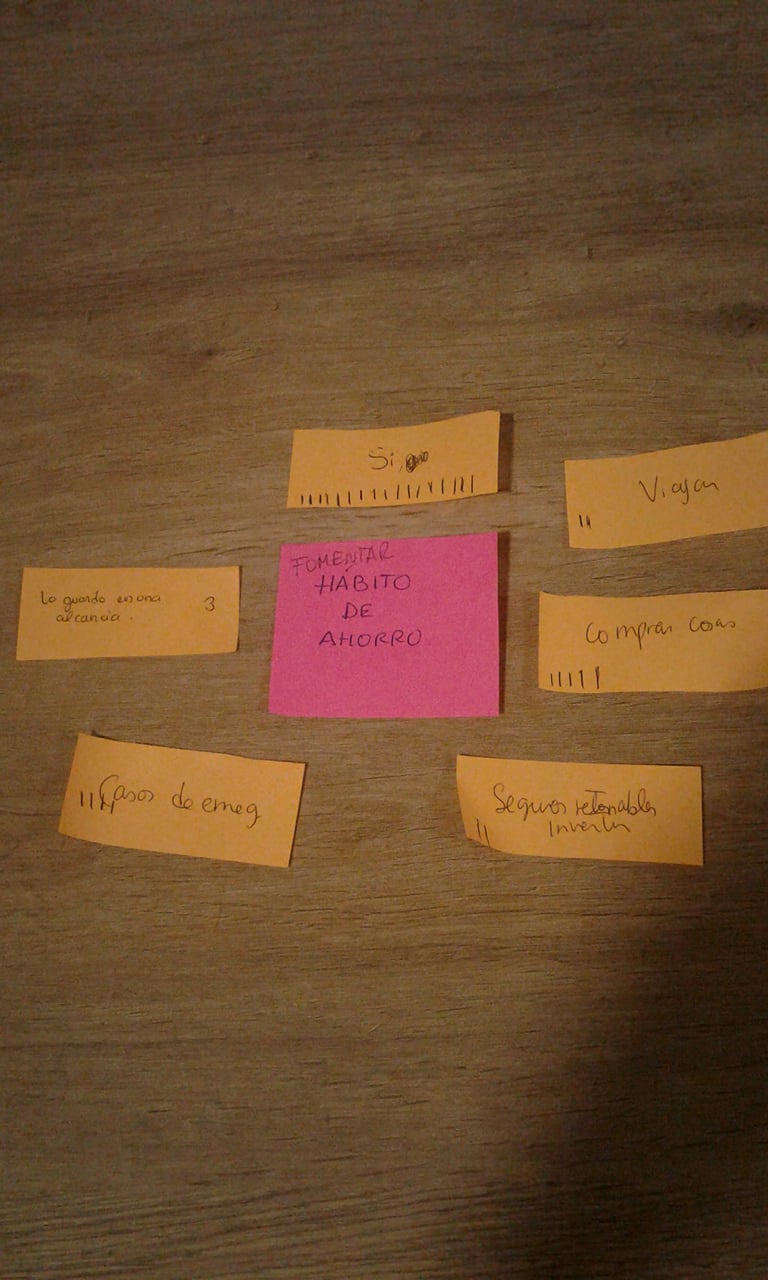 Si,
Viajar
FOMENTAR
HÁBITO
DE
AHORRO
Lo guardo en una
alcancía.
3
Comprar cosas
Casos de emeg
Seguros retornables
Invertir